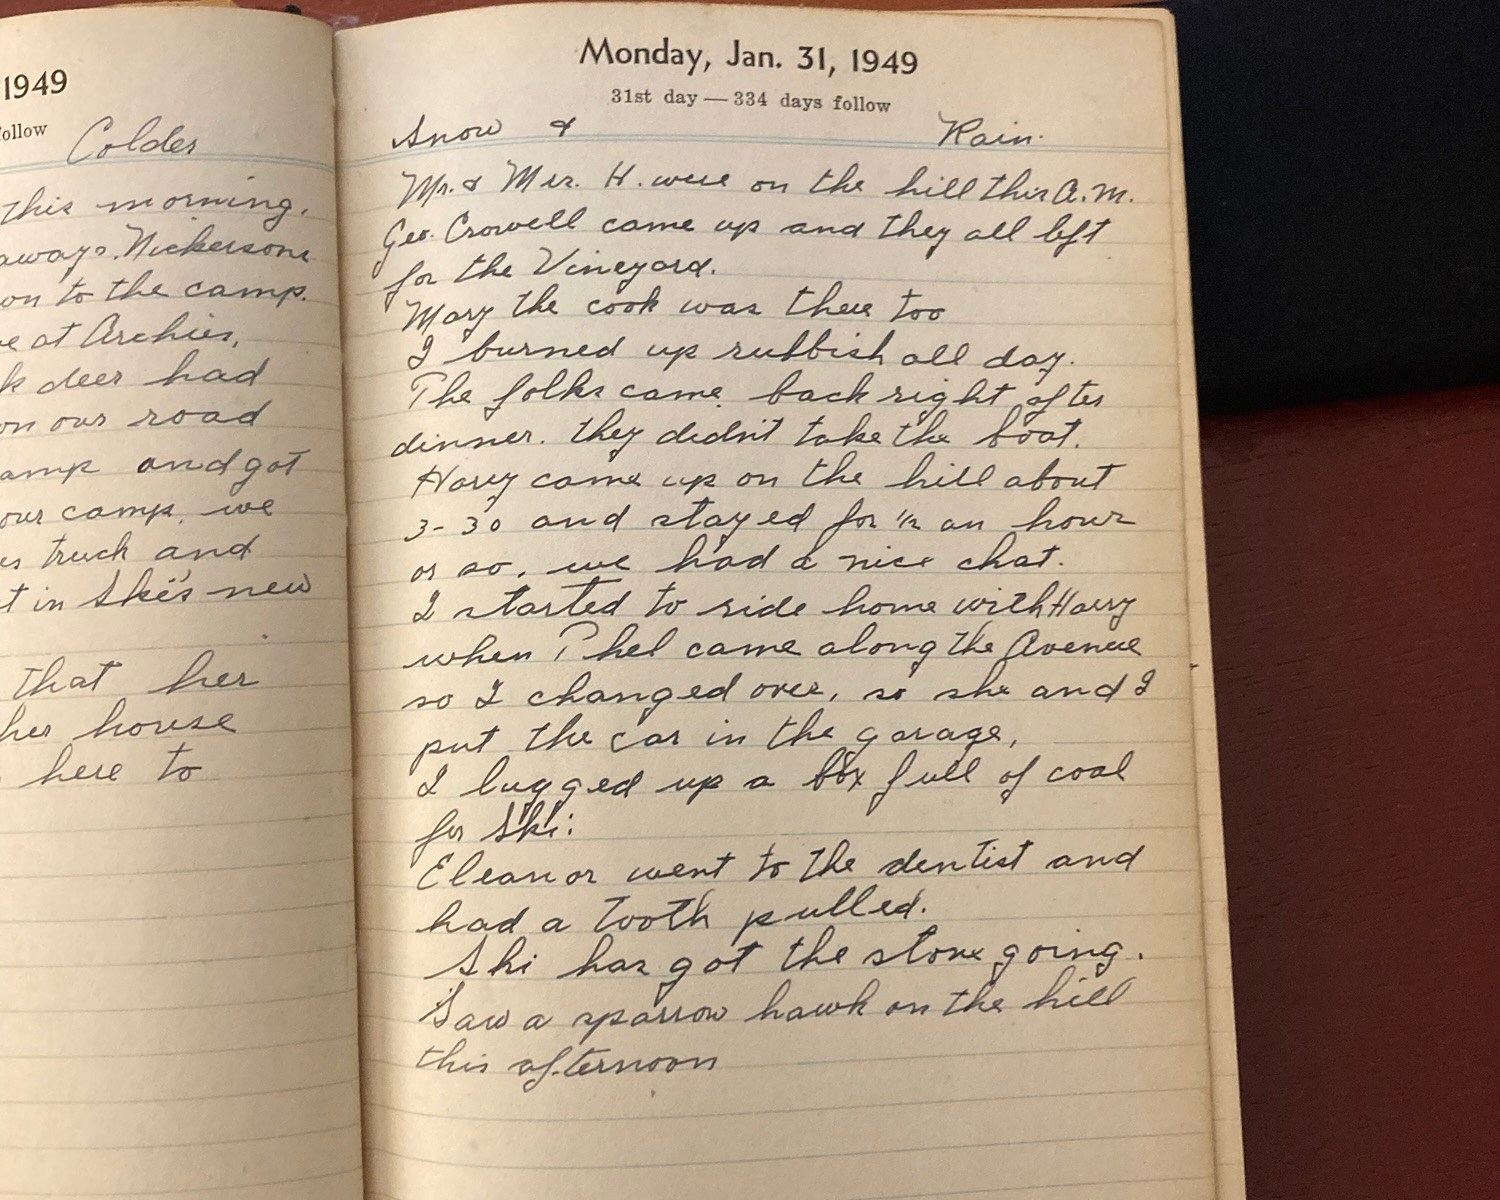 1949
follow
Colder
this morning.
aways. Nickersons
on to the camp.
at Archies,
deer had
on our road
amp and got
our camp. we
truck and
in Ski's new
that her
her house
here to
Monday, Jan. 31, 1949
31st day — 334 days follow
Snow & Rain.
Mr. & Mrs. H. were on the hill this A.M.
Geo. Crowell came up and they all left
for the Vineyard.
Mary the cook was there too
I burned up rubbish all day.
The folks came back right after
dinner. they didn't take the boat.
Harry came up on the hill about
3-30 and stayed for 1/2 an hour
or so, we had a nice chat.
I started to ride home with Harry
when Thel came along the Avenue
so I changed over, so she and I
put the car in the garage,
I lugged up a box full of coal
for Ski:
Eleanor went to the dentist and
had a tooth pulled.
Ski has got the stove going.
Saw a sparrow hawk on the hill
this afternoon